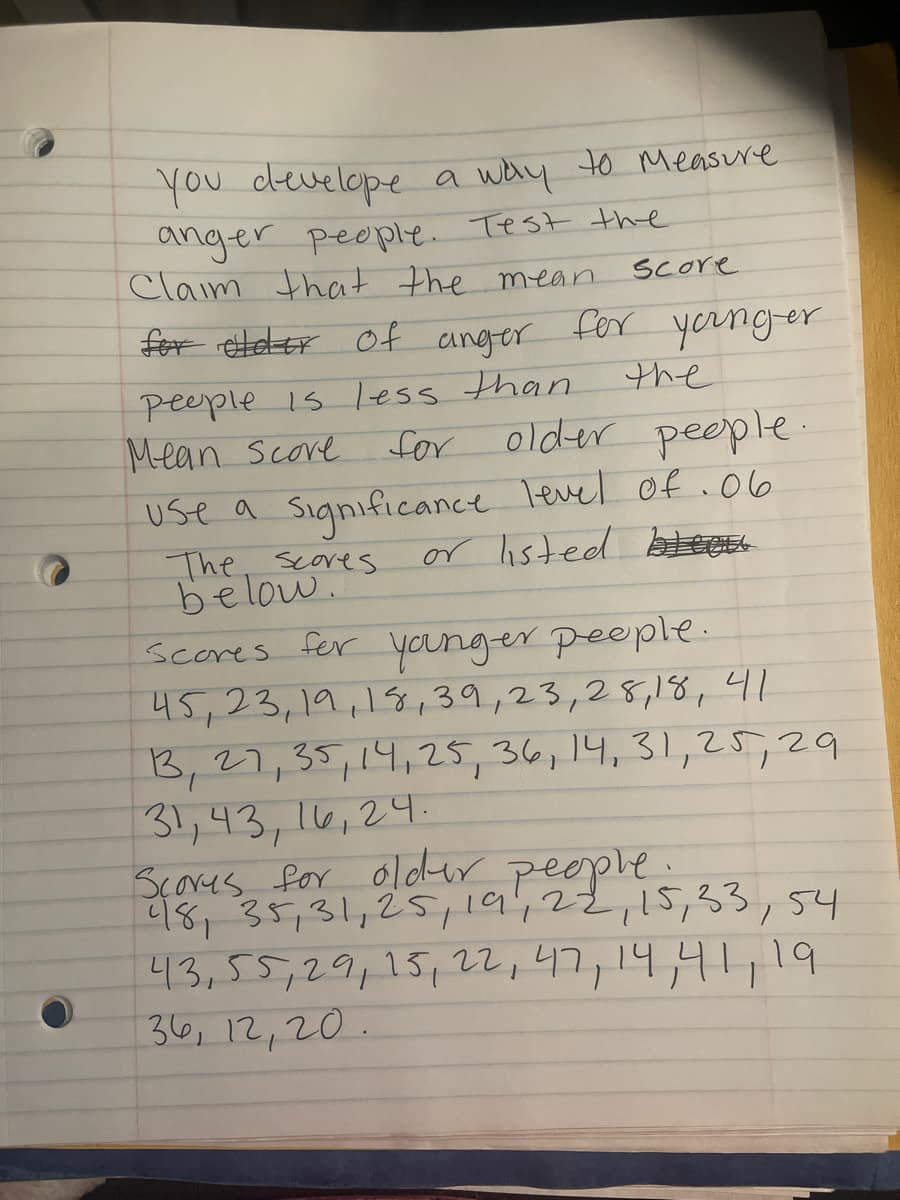 You develope a way to Measure
anger people. Test the
Claim that the mean score
for older of anger for younger
people is less than the
Mean score for older people.
use a Significance level of .06
The scores or listed
below.
Scores for younger people.
45, 23, 19, 18, 39, 23, 28, 18, 41
13, 27, 35, 14, 25, 36, 14, 31, 25, 29
31, 43, 16, 24.
Scores for older people.
48, 35, 31, 25, 19, 22, 15, 33, 54
43, 55, 29, 15, 22, 47, 14, 41, 19
36, 12, 20.